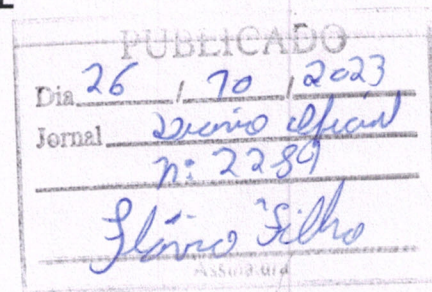 PUBLICADO
Dia 26 / 10 / 2023
Jornal Diário Oficial
nº 2289
Flávio Filho
Assinatura